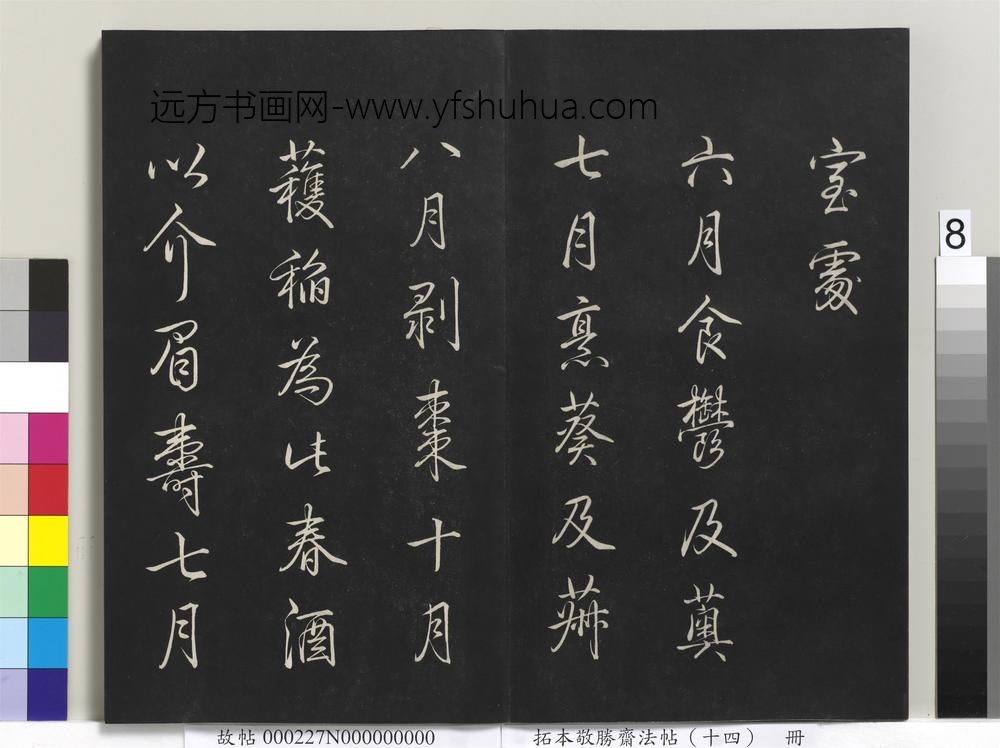 远方书画网-www.yfshuhua.com
室處
六月食鬱及薁
七月烹葵及菽
八月剥棗十月
穫稲為此春酒
以介眉壽七月
8
故帖 000227N000000000
拓本敬勝齋法帖（十四） 冊